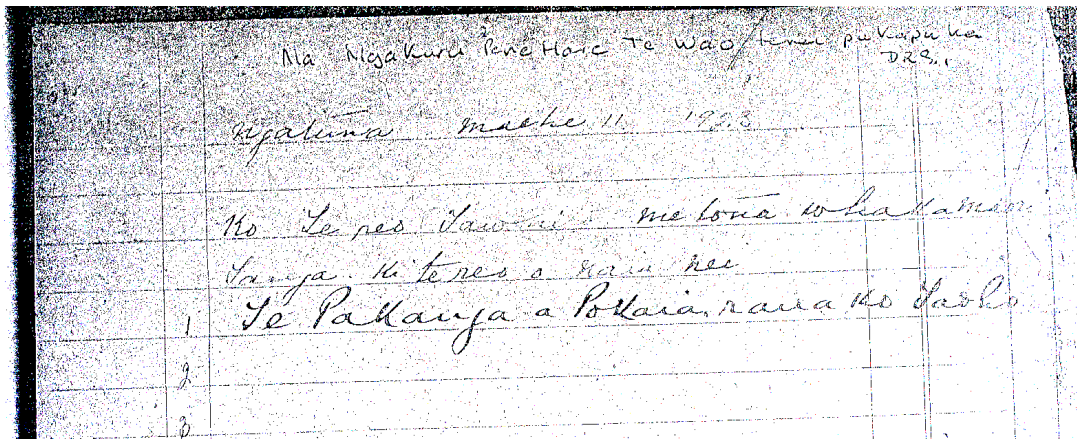 Na Ngakuru Pene Hare Te Wao tenei pukapuka
Ngatuna maehe 11 1923
Ko Te reo Tawhi me tona whakamaori
Tanga ki te reo o naia nei
1 Te Pakanga a Pokaia raua ko Taoho
2
3